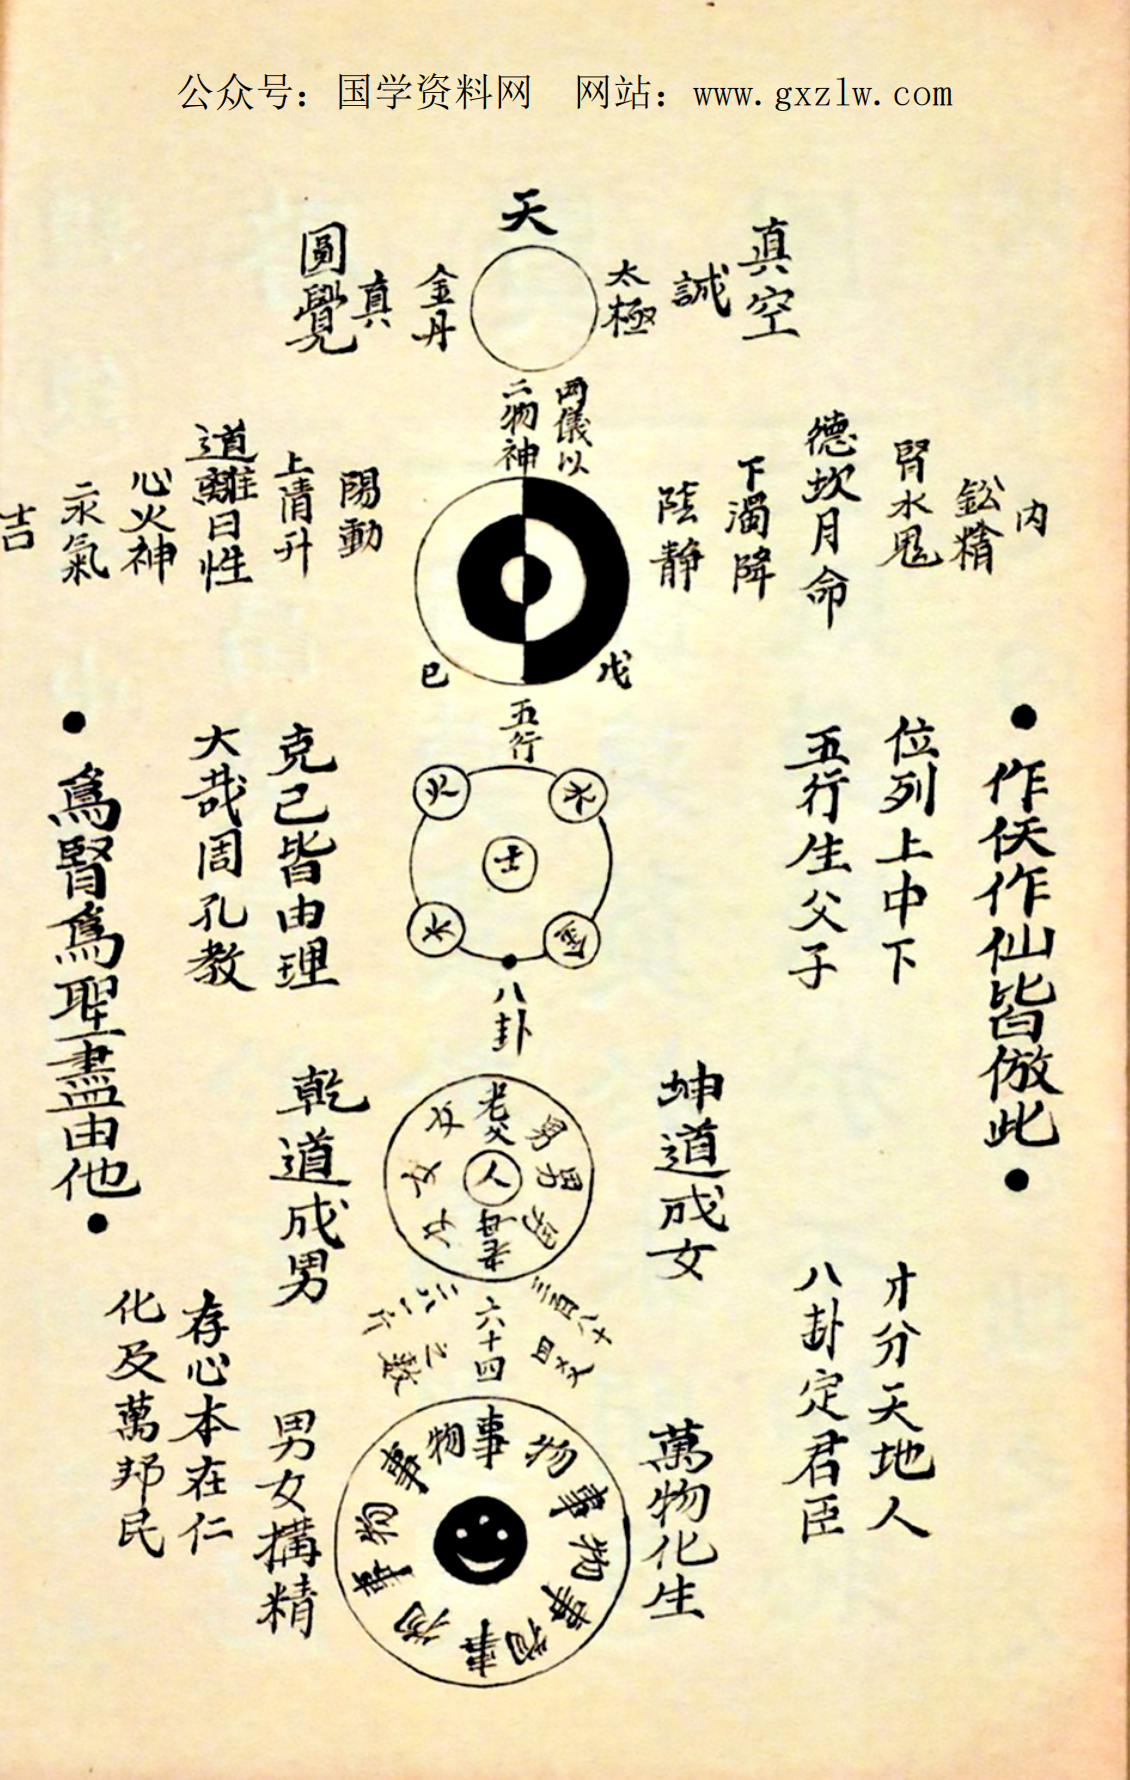 公众号：国学资料网 网站：www.gxzlw.com
天
真空
誠
太極
金丹
真
圓覺
兩儀以
二物神
内
鉛精
腎水鬼
德坎月命
下濁降
陰靜
陽動
上清升
道離日性
心火神
汞氣
吉
戊
己
五行
火
水
土
木
金
●作仸作仙皆倣此●
位列上中下
五行生父子
克己皆由理
大哉周孔教
●為賢為聖盡由他●
八卦
坤道成女
乾道成男
老父
男男男
人
老母
女女女
才分天地人
八卦定君臣
三百八十
四爻
六十四
之數
萬物化生
男女搆精
存心本在仁
化及萬邦民
事物事物事物事物事物事物